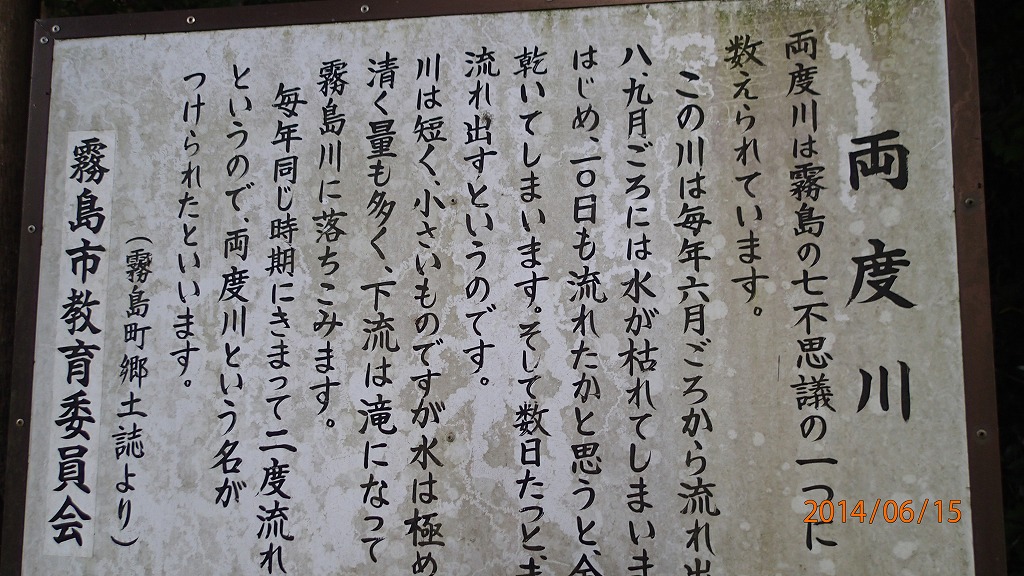 両度川
両度川は霧島の七不思議の一つに
数えられています。
この川は毎年六月ごろから流れ出
八、九月ごろには水が枯れてしまいま
はじめ、一〇日も流れたかと思うと、
乾いてしまいます。そして数日たつと、ま
流れ出すというのです。
川は短く、小さいものですが水は極め
清く量も多く、下流は滝になって
霧島川に落ちこみます。
毎年同じ時期にきまって二度流れ
というので、両度川という名が
つけられたといいます。
（霧島町郷土誌より）
霧島市教育委員会
2014/06/15